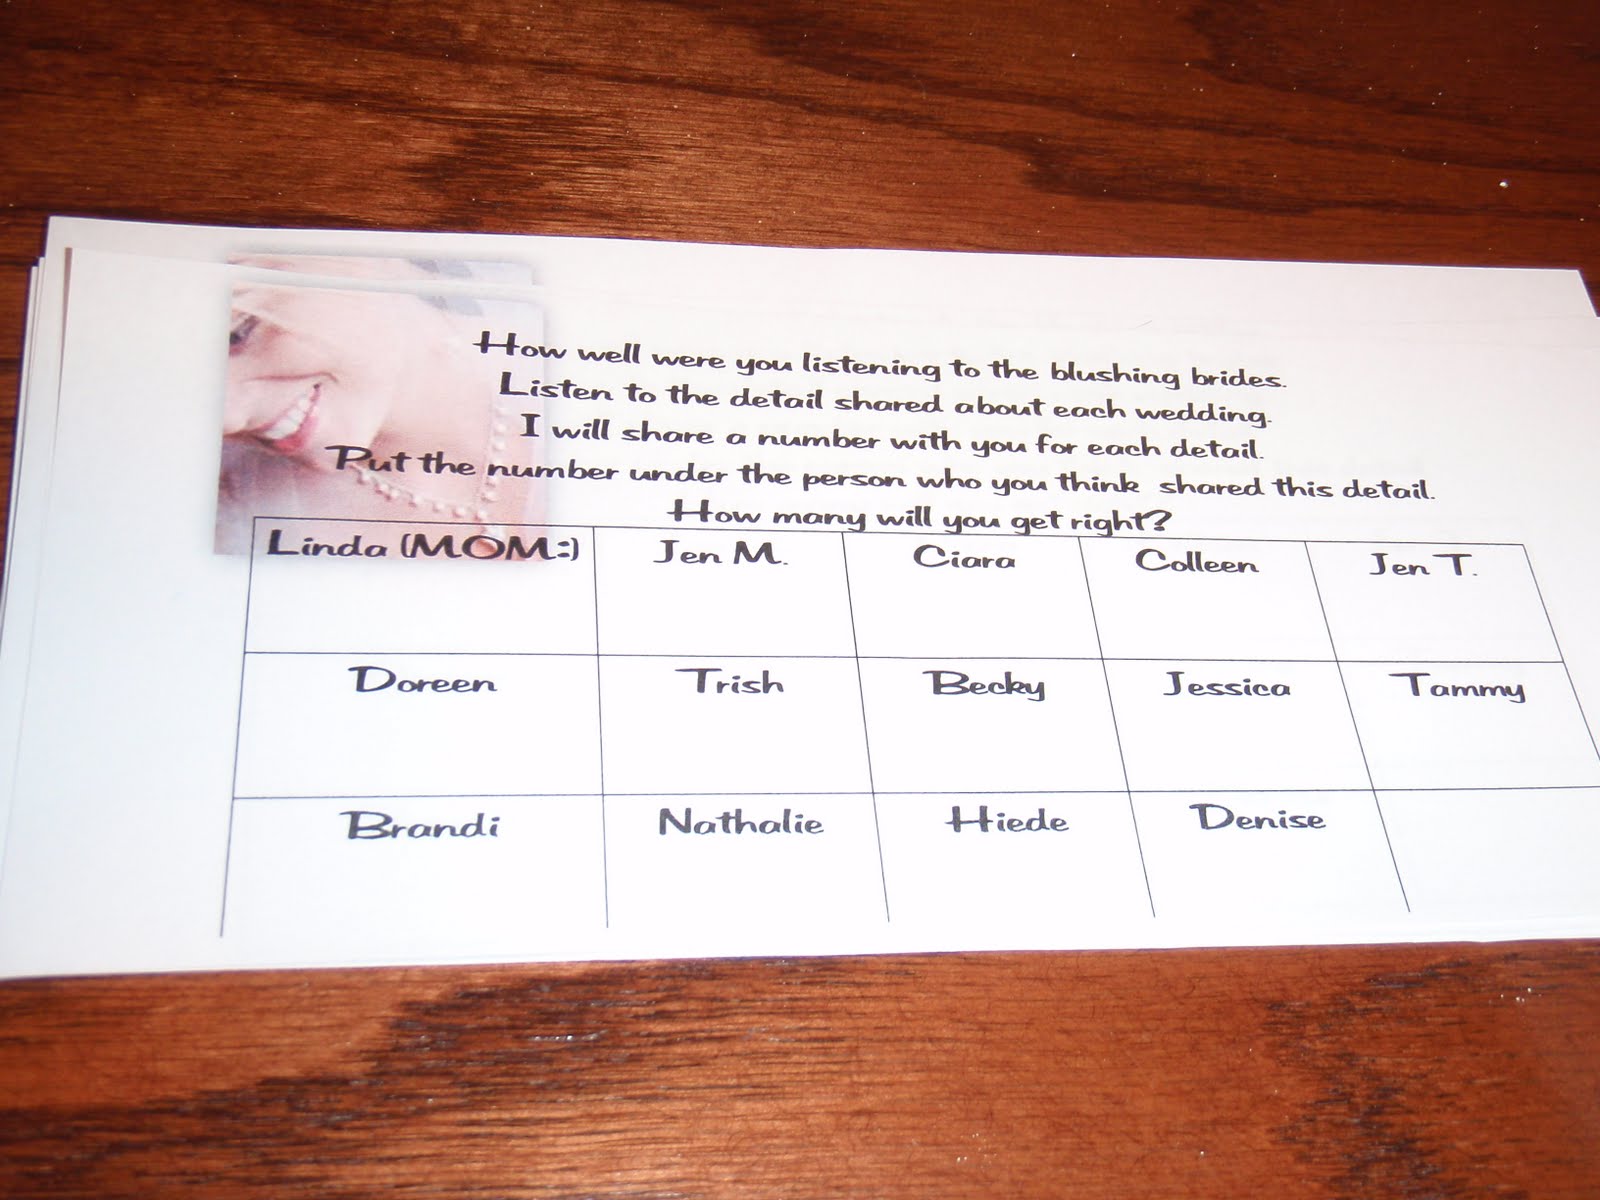 How well were you listening to the blushing brides.
Listen to the detail shared about each wedding.
I will share a number with you for each detail.
Put the number under the person who you think shared this detail.
How many will you get right?
Linda (MOM:) Jen M. Ciara Colleen Jen T.
Doreen Trish Becky Jessica Tammy
Brandi Nathalie Hiede Denise